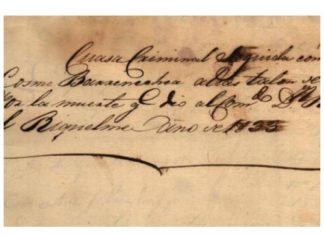 Causa Criminal Seguida con
Cosme Barrenechea alias talan de
Por la muerte q.e dio al Com.te D.n
l Riquelme Año de 1833